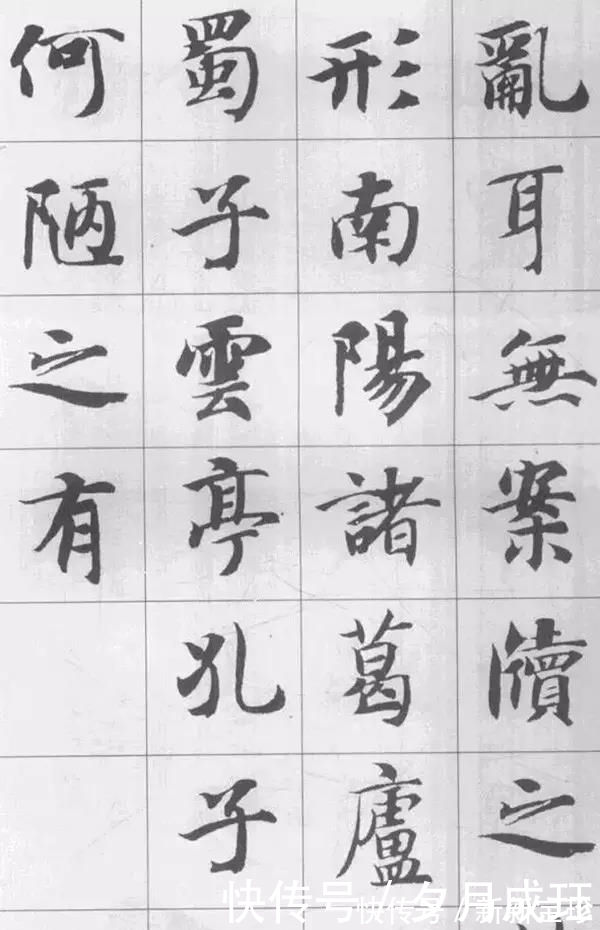 亂耳無案牘之
形南陽諸葛廬
蜀子雲亭孔子
何陋之有
快传号 / 夕月成环
快传号 /